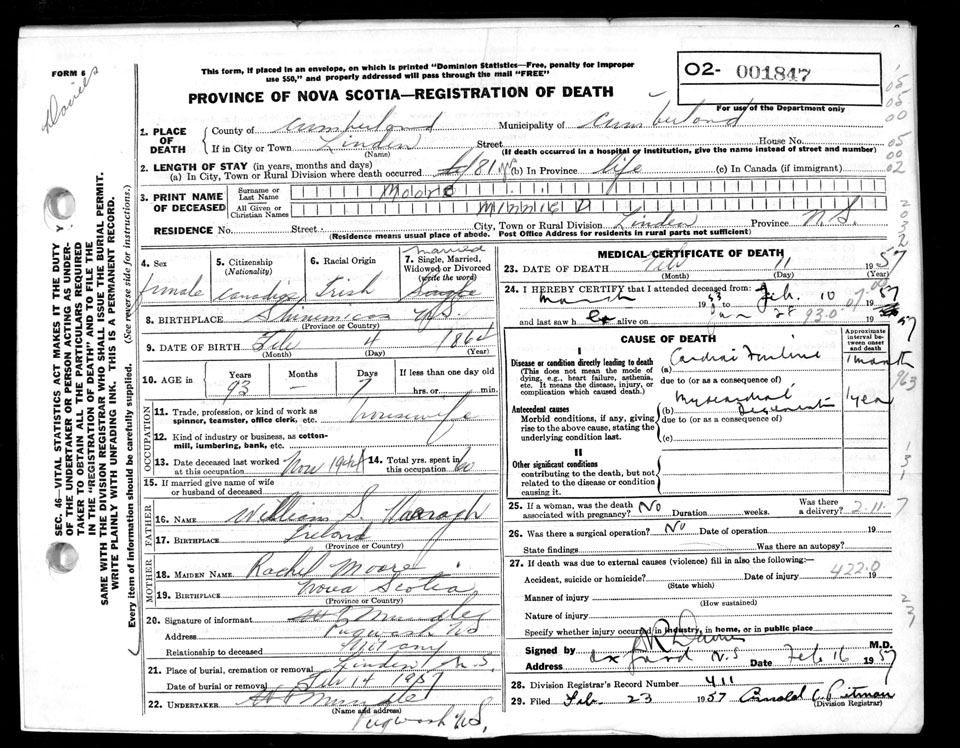 FORM 6
This form, if placed in an envelope, on which is printed "Dominion Statistics—Free, penalty for improper
use $50," and properly addressed will pass through the mail "FREE"
O2- 001847
PROVINCE OF NOVA SCOTIA—REGISTRATION OF DEATH
For use of the Department only
SEC. 46—VITAL STATISTICS ACT MAKES IT THE DUTY
OF THE UNDERTAKER OR PERSON ACTING AS UNDER-
TAKER TO OBTAIN ALL THE PARTICULARS REQUIRED
IN THE "REGISTRATION OF DEATH" AND TO FILE THE
SAME WITH THE DIVISION REGISTRAR WHO SHALL ISSUE THE BURIAL PERMIT.
WRITE PLAINLY WITH UNFADING INK. THIS IS A PERMANENT RECORD.
Every item of information should be carefully supplied. (See reverse side for instructions.)
1. PLACE OF DEATH
County of Cumberland Municipality of Cumberland
If in City or Town Linden Street House No.
(Name) (If death occurred in a hospital or institution, give the name instead of street and number)
2. LENGTH OF STAY (in years, months and days)
(a) In City, Town or Rural Division where death occurred 81 (b) In Province life (c) In Canada (if immigrant)
3. PRINT NAME OF DECEASED
Surname or Last Name Moore
All Given or Christian Names
RESIDENCE No. Street City, Town or Rural Division Linden Province N.S.
(Residence means usual place of abode. Post Office Address for residents in rural parts not sufficient)
4. Sex female
5. Citizenship (Nationality) Canadian
6. Racial Origin Irish
7. Single, Married, Widowed or Divorced (write the word) married
8. BIRTHPLACE Shinimicas N.S.
(Province or Country)
9. DATE OF BIRTH Feb 4 1864
(Month) (Day) (Year)
10. AGE in Years 93 Months — Days 7 If less than one day old hrs. or min.
OCCUPATION
11. Trade, profession, or kind of work as spinner, teamster, office clerk, etc. housewife
12. Kind of industry or business, as cotton-mill, lumbering, bank, etc.
13. Date deceased last worked at this occupation Nov 1944
14. Total yrs. spent in this occupation 60
15. If married give name of wife or husband of deceased
FATHER
16. NAME William S.
17. BIRTHPLACE Ireland
(Province or Country)
MOTHER
18. MAIDEN NAME Rachel Moore
19. BIRTHPLACE Nova Scotia
(Province or Country)
20. Signature of informant
Address Pugwash NS
Relationship to deceased Not any
21. Place of burial, cremation or removal Linden N.S.
Date of burial or removal Feb 14 1957
22. UNDERTAKER
(Name and address)
Pugwash N.S.
MEDICAL CERTIFICATE OF DEATH
23. DATE OF DEATH Feb 11 1957
(Month) (Day) (Year)
24. I HEREBY CERTIFY that I attended deceased from:
March 1953 to Feb. 10 1957
and last saw her alive on Jan 28 1957
93.0
CAUSE OF DEATH
Approximate interval between onset and death
I
Disease or condition directly leading to death
(This does not mean the mode of dying, e.g., heart failure, asthenia, etc. It means the disease, injury, or complication which caused death.)
(a) Cardiac Failure 1 month
due to (or as a consequence of)
Antecedent causes
Morbid conditions, if any, giving rise to the above cause, stating the underlying condition last.
(b) Myocardial Degeneration 1 year
due to (or as a consequence of)
(c)
II
Other significant conditions
contributing to the death, but not related to the disease or condition causing it.
25. If a woman, was the death associated with pregnancy? No Duration weeks. Was there a delivery?
2.11.7
26. Was there a surgical operation? No Date of operation 19
State findings Was there an autopsy?
27. If death was due to external causes (violence) fill in also the following:—
Accident, suicide or homicide? Date of injury 19
422.0
(State which)
Manner of injury
(How sustained)
Nature of injury
Specify whether injury occurred in industry, in home, or in public place
Signed by M.D.
Address Oxford N.S Date Feb 16 1957
28. Division Registrar's Record Number 411
29. Filed Feb. 23 1957 Arnold C. Pitman
(Division Registrar)